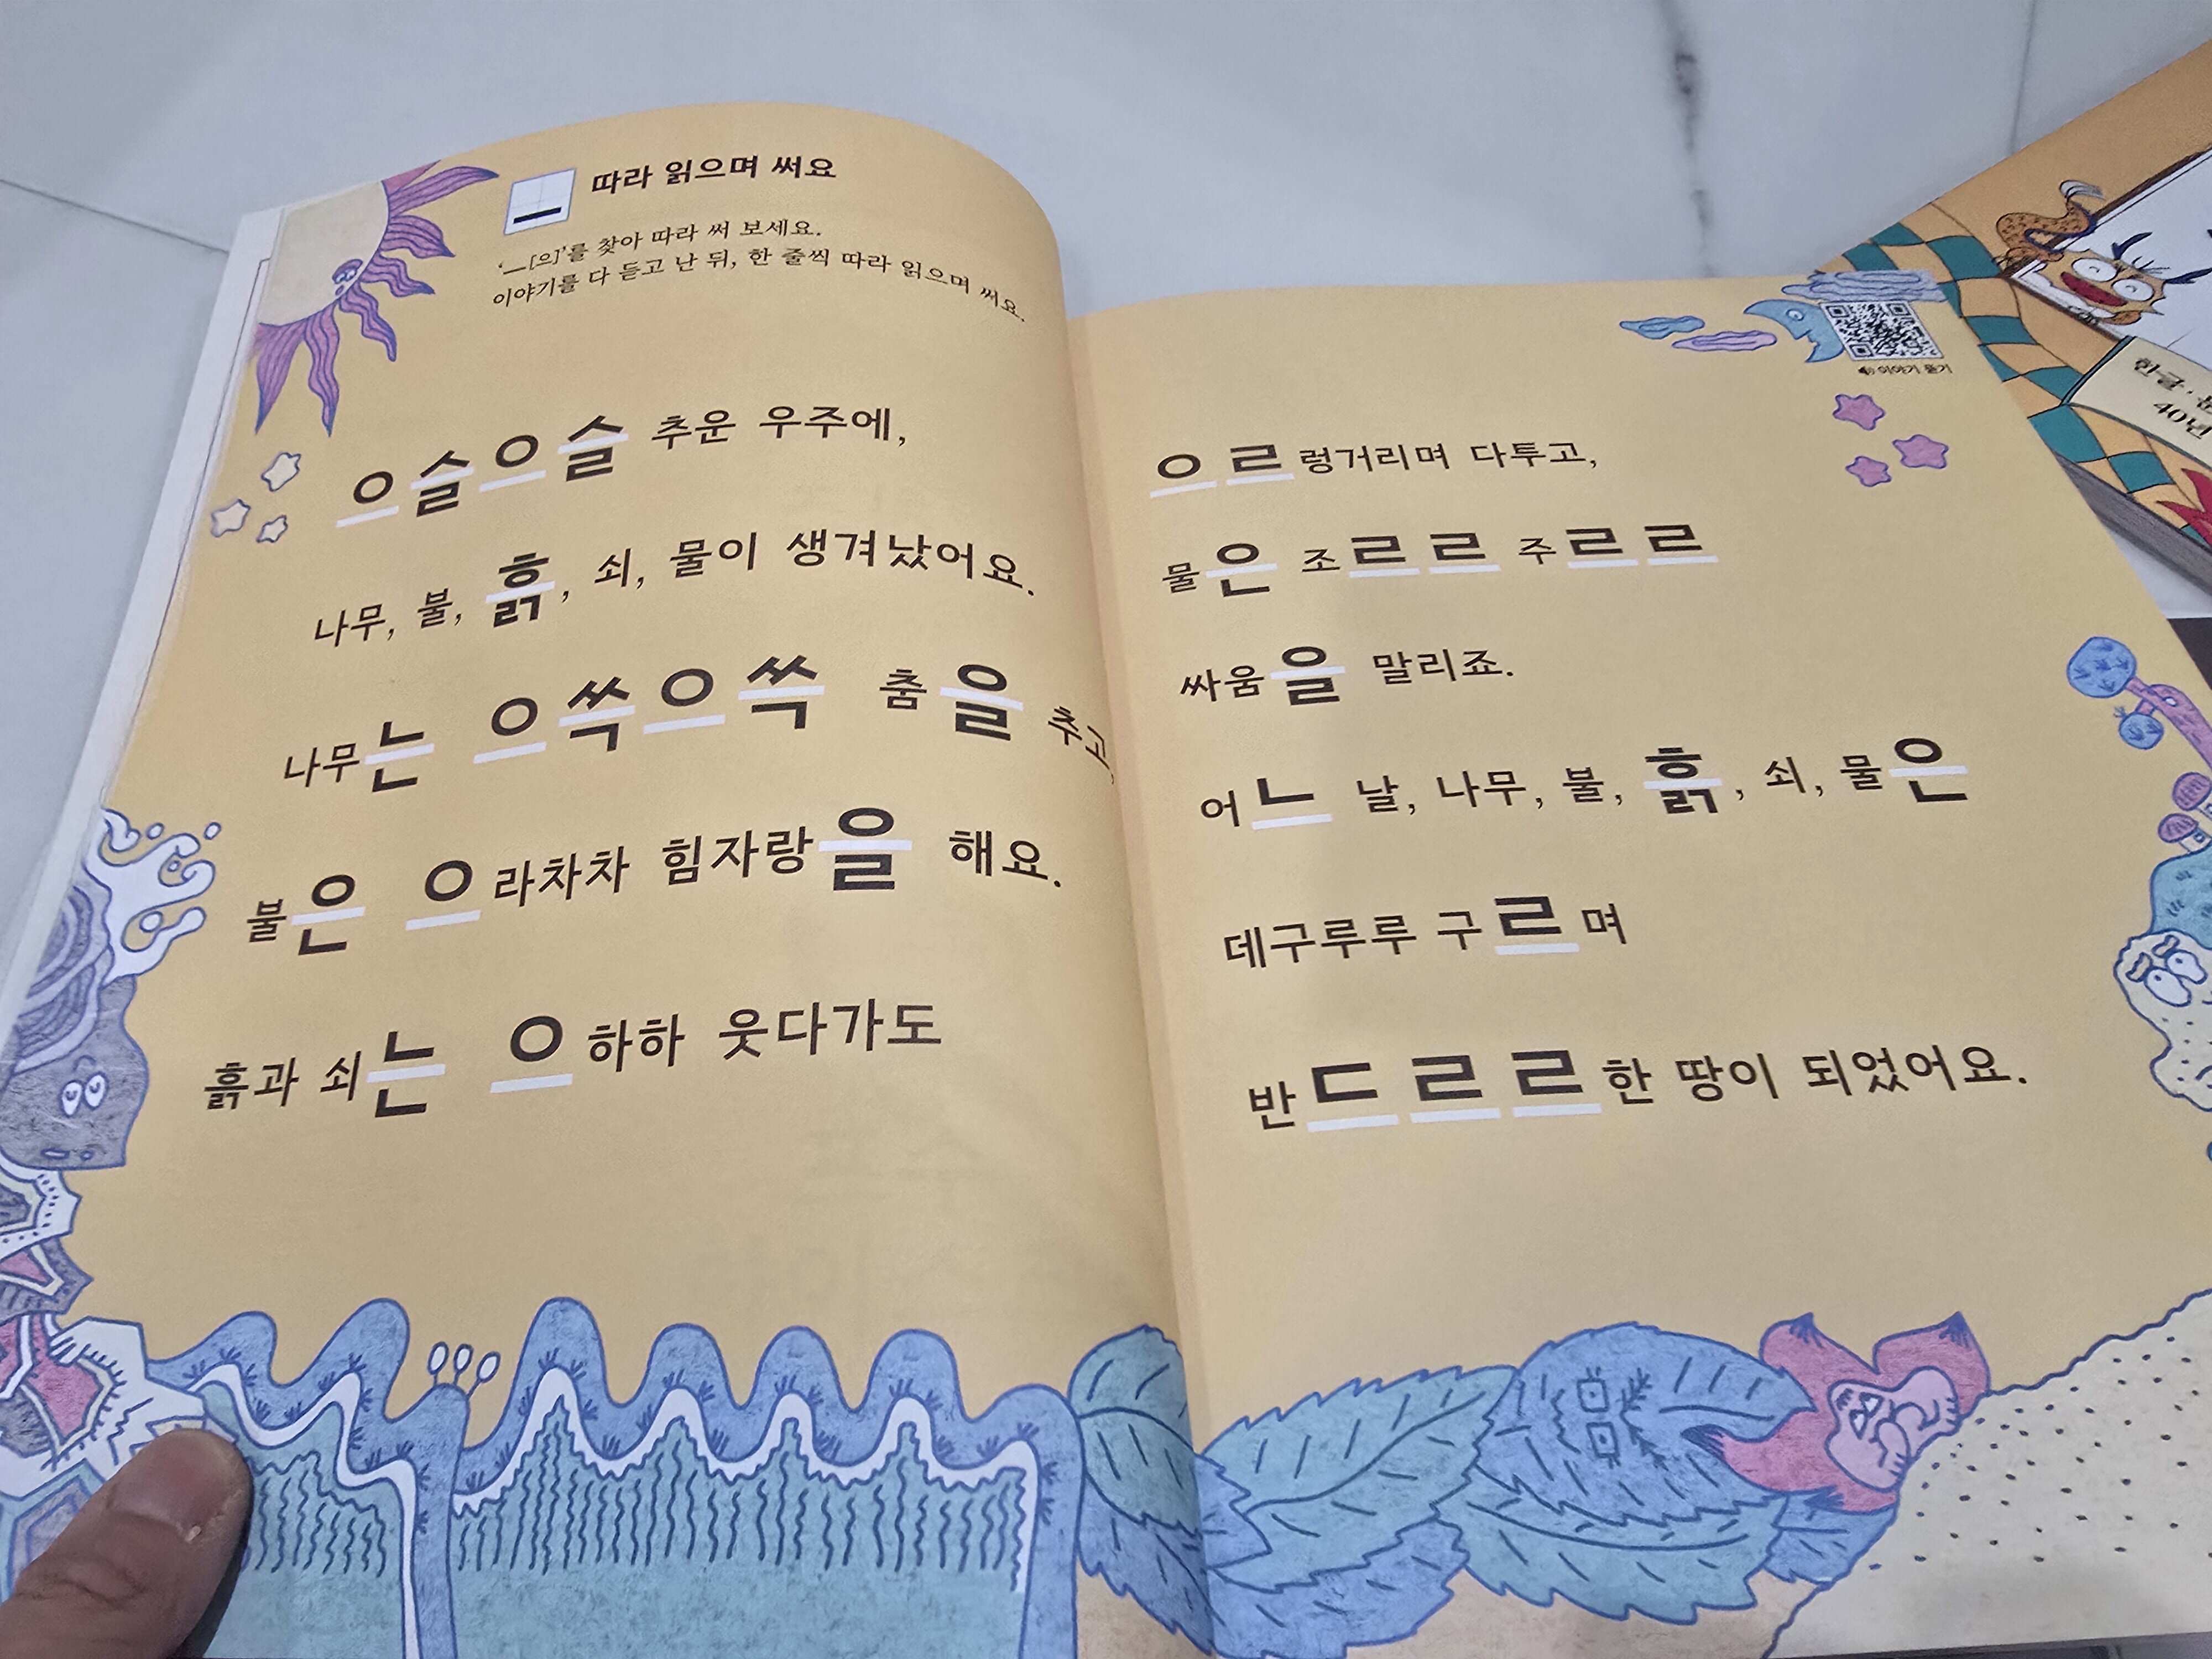 ㅡ 따라 읽으며 써요
‘ㅡ[으]’를 찾아 따라 써 보세요.
이야기를 다 듣고 난 뒤, 한 줄씩 따라 읽으며 써요.
으슬으슬 추운 우주에,
나무, 불, 흙, 쇠, 물이 생겨났어요.
나무는 으쓱으쓱 춤을 추고,
불은 으라차차 힘자랑을 해요.
흙과 쇠는 으하하 웃다가도
이야기 듣기
으르렁거리며 다투고,
물은 조르르 주르르
싸움을 말리죠.
어느 날, 나무, 불, 흙, 쇠, 물은
데구루루 구르며
반드르르한 땅이 되었어요.
한글·
40년